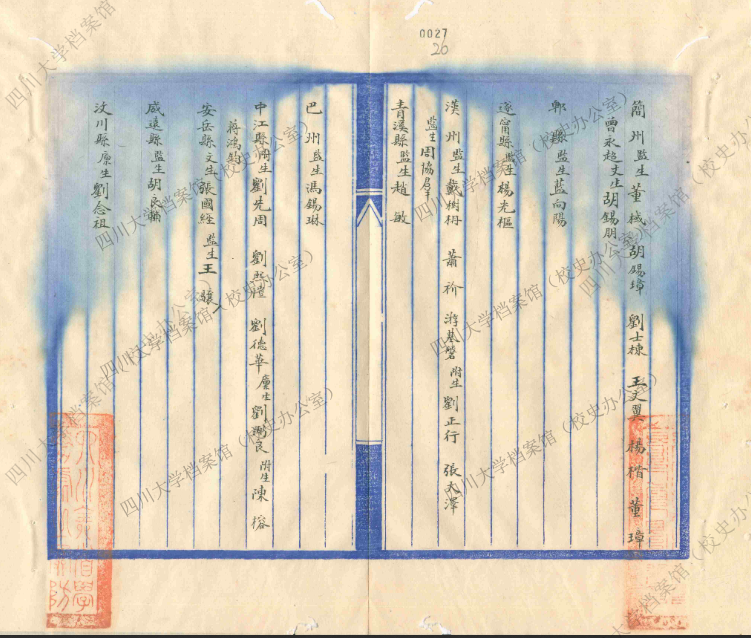 0027
26
簡州監生董棫 胡錫璋 劉士棟 王文翼 楊楷 董璋
曾永超文生胡錫朋
郫縣監生藍向陽
遂甯縣監生楊光樞
漢州監生戴樹栂 蕭衸 游基磐附生劉正行 張天澤
監生周協羣
青溪縣監生趙敏
巴州監生馮錫琳
中江縣附生劉先周 劉熙澧 劉德華廩生劉弼良附生陳榕
蔣鴻鈞
安岳縣文生張國經監生王驤
威遠縣監生胡良輔
汶川縣廩生劉念祖
四川大学档案馆（校史办公室）